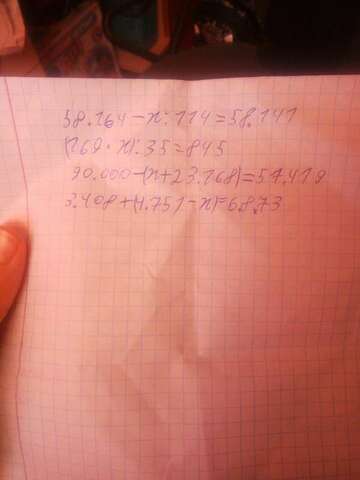 58.164-x:114=58.141
(169·x):35=845
90.000-(x+23.768)=57.419
3.408+(4.751-x)=68.73